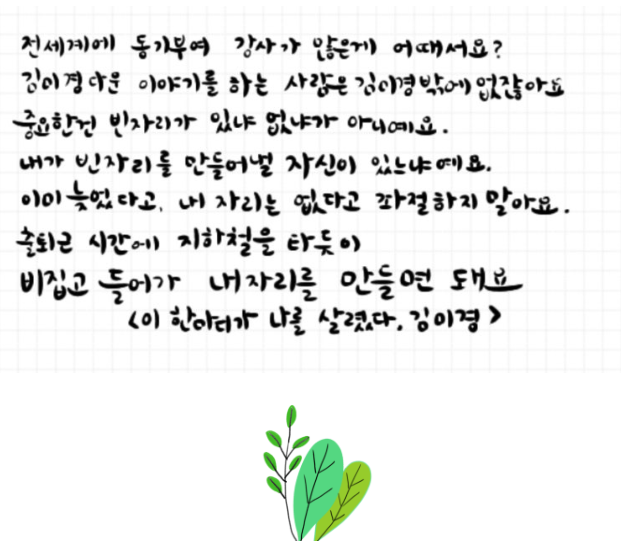 전세계에 동기부여 강사가 많은게 어때서요?
김이경다운 이야기를 하는 사람은 김이경밖에 없잖아요
중요한건 빈자리가 있냐 없냐가 아니예요.
내가 빈자리를 만들어낼 자신이 있느냐예요.
이미 늦었다고, 내 자리는 없다고 좌절하지 말아요.
출퇴근 시간에 지하철을 타듯이
비집고 들어가 내자리를 만들면 돼요
<이 한마디가 나를 살렸다, 김이경>